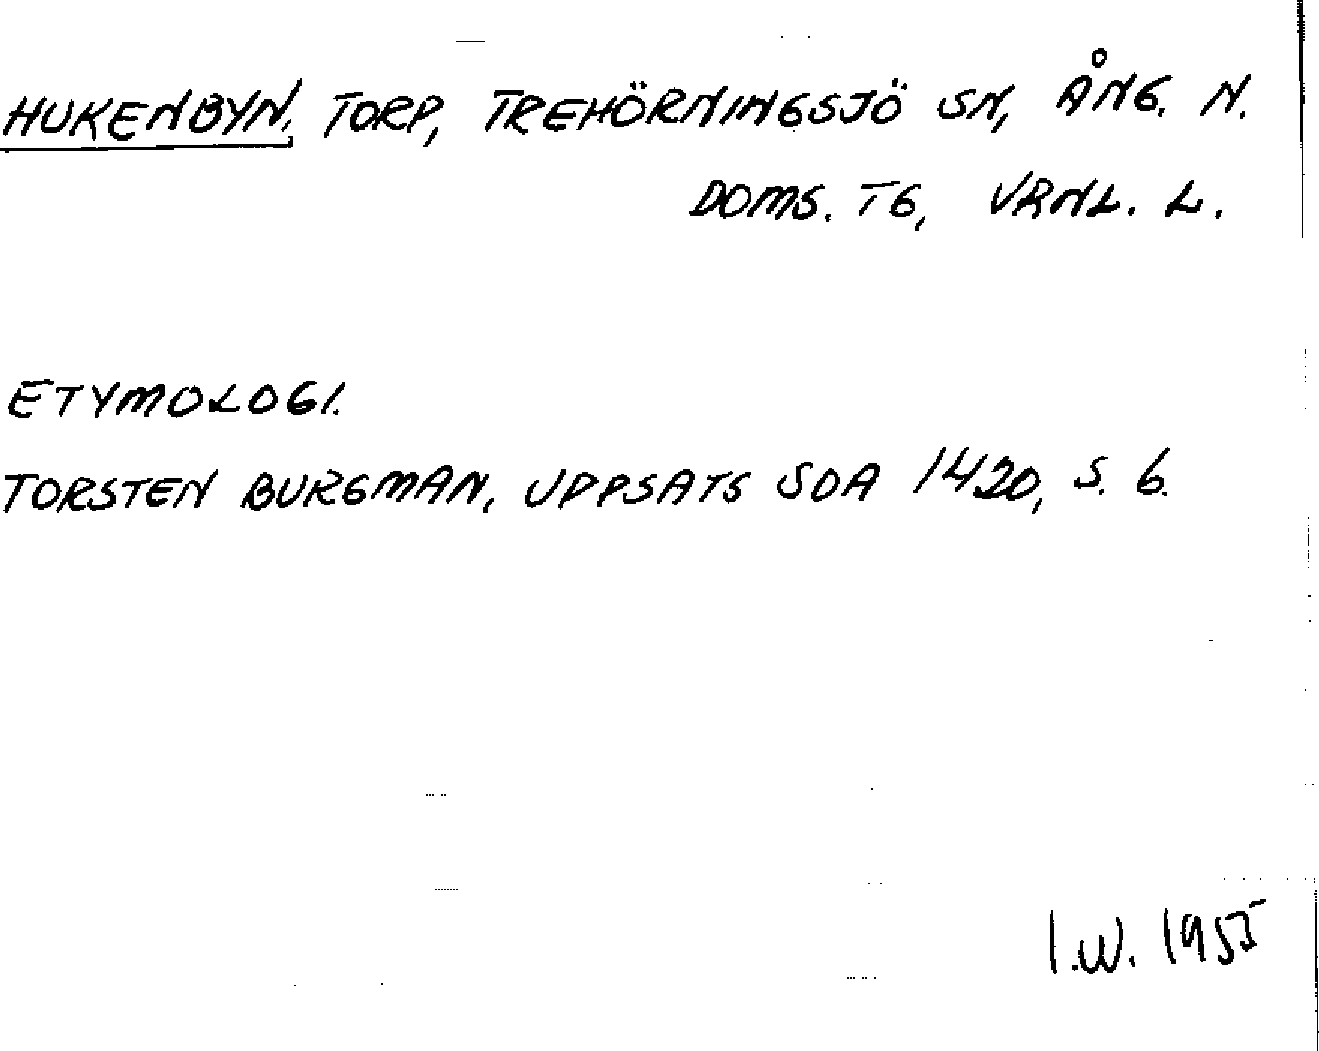 HUKENBYN. TORP, TREHÖRNINGSJÖ SN, ÅNG. N.
DOMS. TG, VRNL. L.
ETYMOLOGI.
TORSTEN BURGMAN, UPPSATS SOA 1420, S. 6.
I.W. 1955